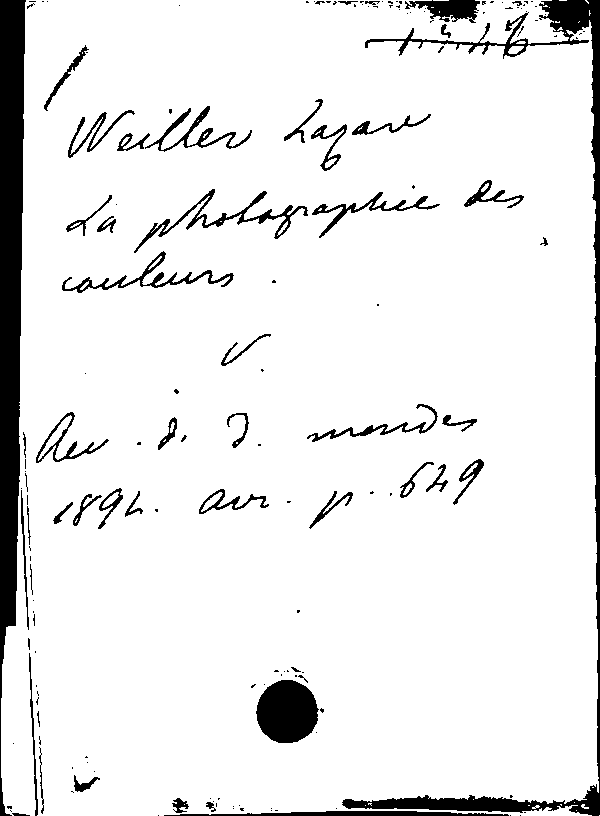 Weiller Lazare
La photographie des
couleurs.
V.
Rev. d. d. mondes
1894. avr. p. 649